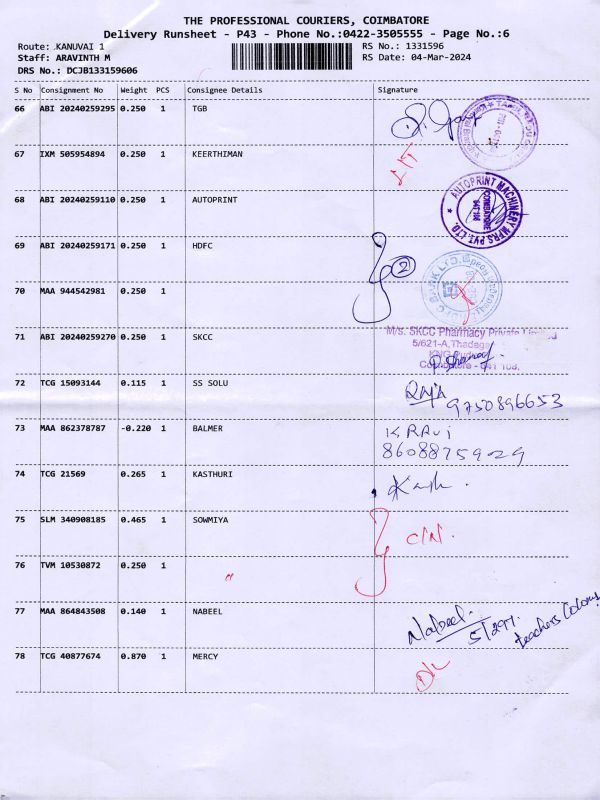 THE PROFESSIONAL COURIERS, COIMBATORE
Delivery Runsheet - P43 - Phone No.:0422-3505555 - Page No.:6
Route: KANUVAI 1 RS No.: 1331596
Staff: ARAVINTH M RS Date: 04-Mar-2024
DRS No.: DCJB133159606
S No Consignment No Weight PCS Consignee Details Signature
66 ABI 20240259295 0.250 1 TGB
67 IXM 505954894 0.250 1 KEERTHIMAN
68 ABI 20240259110 0.250 1 AUTOPRINT
AUTOPRINT MACHINERY MFRS PVT. LTD. ★
COIMBATORE
69 ABI 20240259171 0.250 1 HDFC
2
70 MAA 944542981 0.250 1
71 ABI 20240259270 0.250 1 SKCC
M/s. SKCC Pharmacy Private Limited
5/621-A, Thadaga
72 TCG 15093144 0.115 1 SS SOLU
Raja 9750896653
73 MAA 862378787 -0.220 1 BALMER
K RAVI
8608875929
74 TCG 21569 0.265 1 KASTHURI
75 SLM 340908185 0.465 1 SOWMIYA
76 TVM 10530872 0.250 1
77 MAA 864843508 0.140 1 NABEEL
Nabeel.
5/297.
teachers Colony
78 TCG 40877674 0.870 1 MERCY